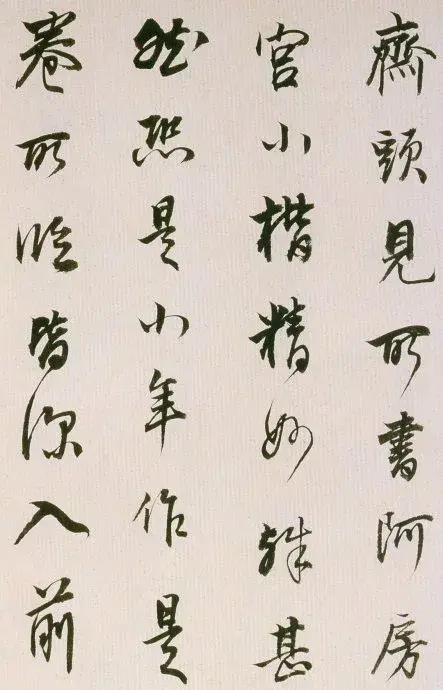 齋頭見所書阿房
宮小楷精妙殊甚
然恐是小年作是
卷所臨皆深入前